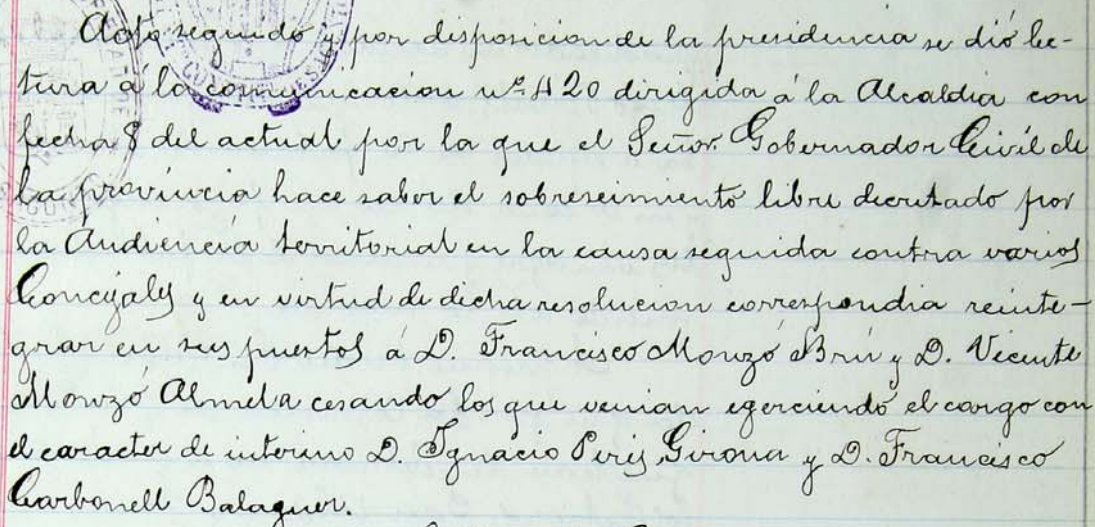 Acto seguido y por disposicion de la presidencia se dió lec-
tura á la comunicacion nº 420 dirigida á la Alcaldia con
fecha 8 del actual por la que el Señor Gobernador Civil de
la provincia hace saber el sobreseimiento libre decretado por
la Audiencia territorial en la causa seguida contra varios
Concejales y en virtud de dicha resolucion correspondia reinte-
grar en sus puestos á D. Francisco Monzó Brú y D. Vicente
Monzó Almela cesando los que venian egerciendo el cargo con
el caracter de interino D. Ignacio Peris Girona y D. Francisco
Carbonell Balaguer.